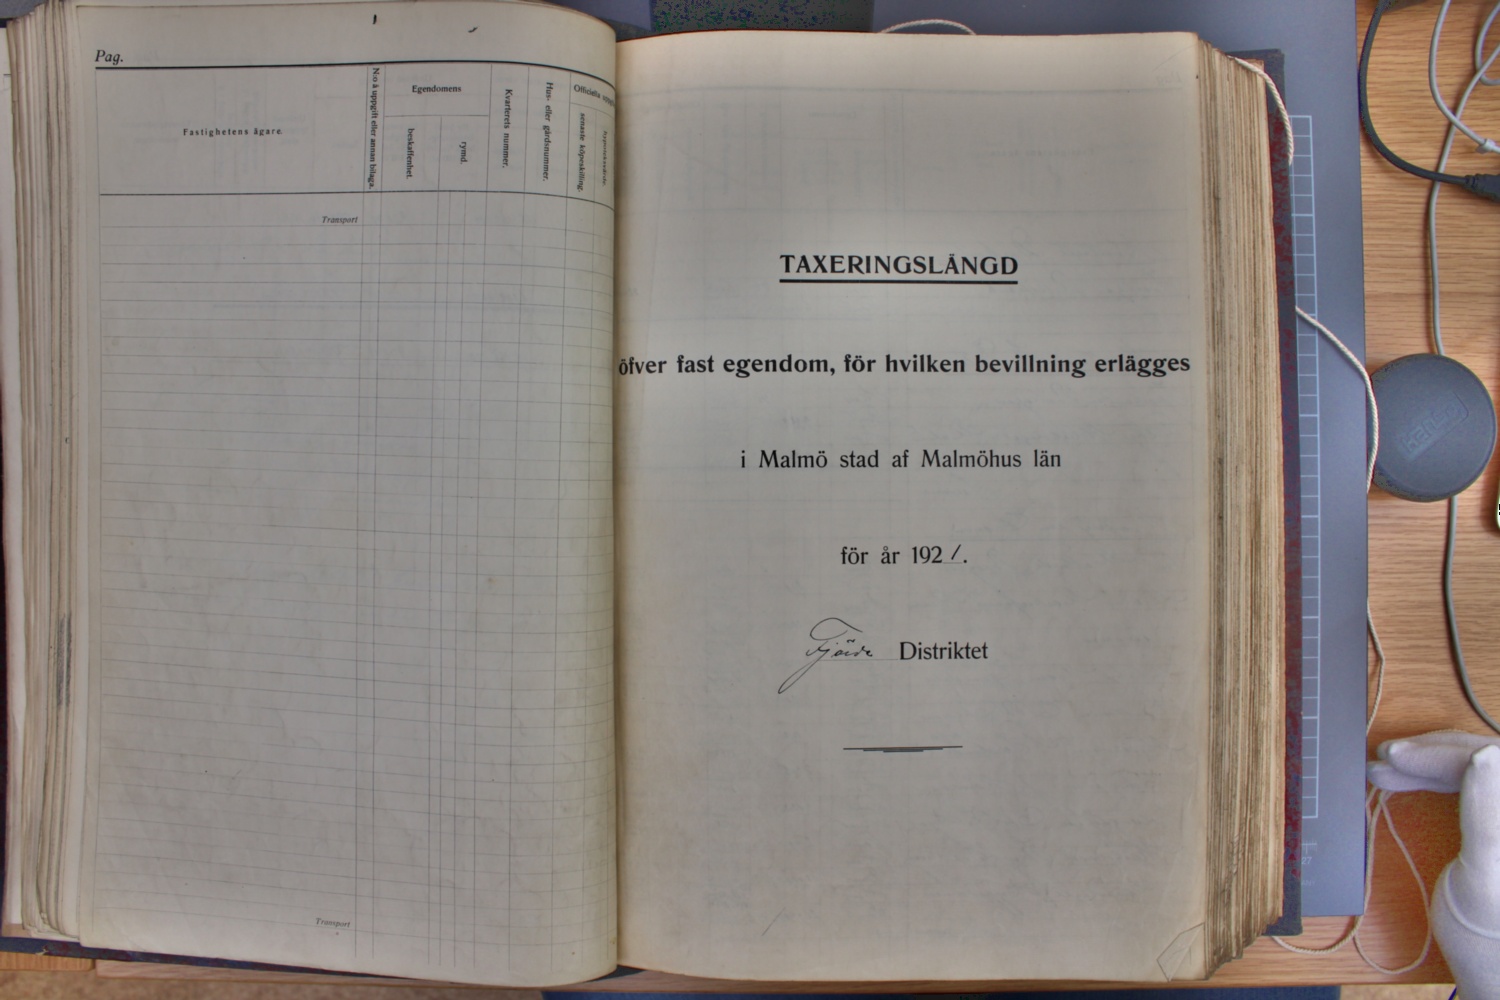 Pag.
Fastighetens ägare.
N:o å uppgift eller annan bilaga.
Egendomens
beskaffenhet.
rymd.
Kvarterets nummer.
Hus- eller gårdsnummer.
Officiella
senaste köpeskilling.
Transport
Transport
TAXERINGSLÄNGD
öfver fast egendom, för hvilken bevillning erlägges
i Malmö stad af Malmöhus län
för år 1921.
Fjärde Distriktet